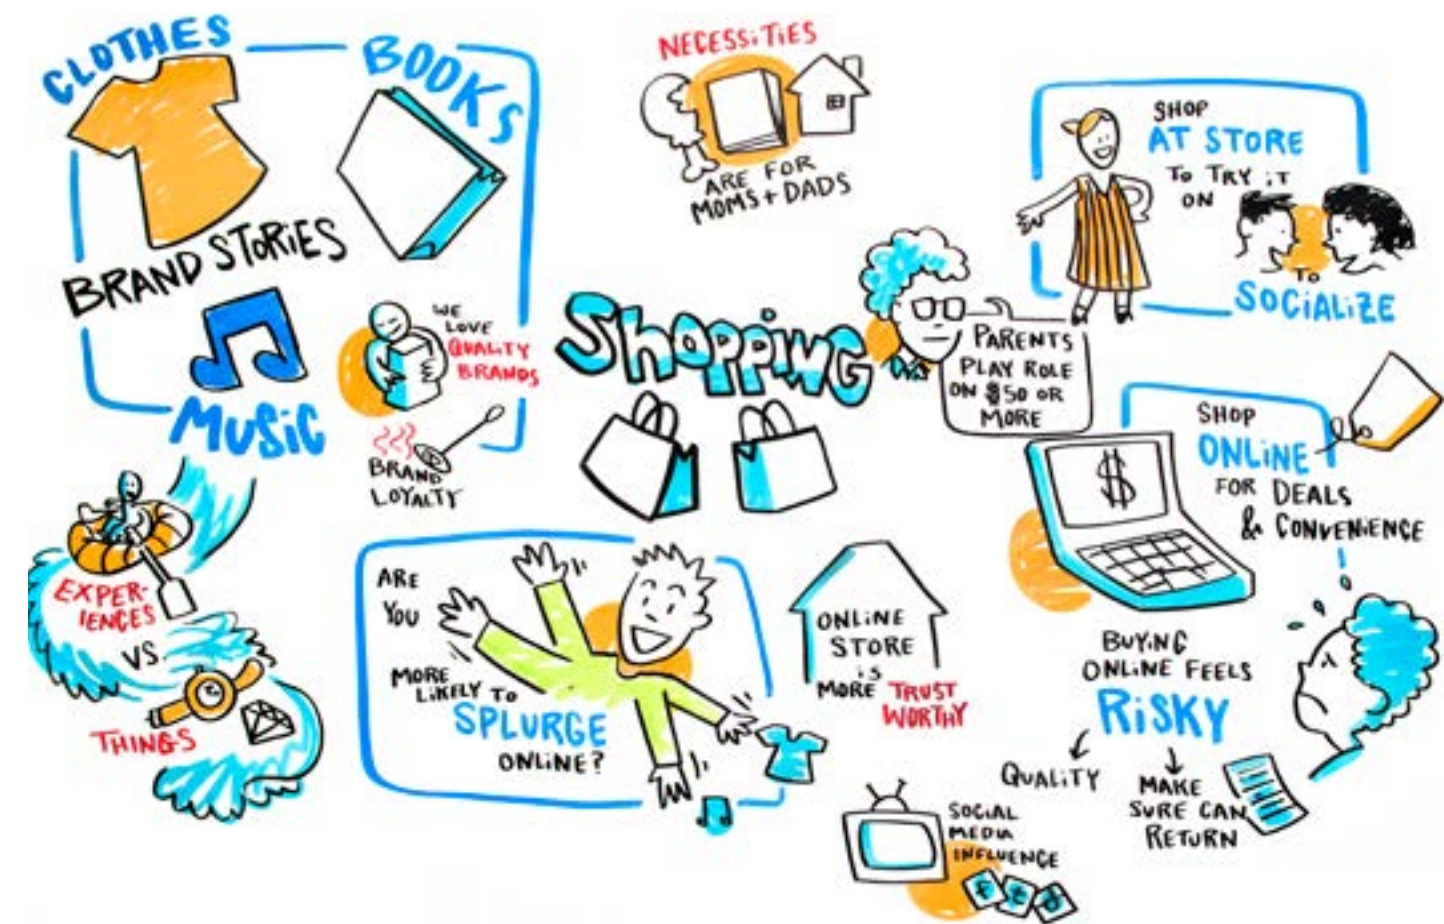 CLOTHES
BOOKS
BRAND STORIES
MUSIC
WE
LOVE
QUALITY
BRANDS
BRAND
LOYALTY
NECESSITIES
ARE FOR
MOMS + DADS
SHOPPING
PARENTS
PLAY ROLE
ON $50 OR
MORE
SHOP
AT STORE
TO TRY IT
ON
TO
SOCIALIZE
SHOP
ONLINE
FOR DEALS
& CONVENIENCE
$
EXPER-
IENCES
VS.
THINGS
ARE
YOU
MORE
LIKELY TO
SPLURGE
ONLINE?
ONLINE
STORE
IS
MORE TRUST
WORTHY
BUYING
ONLINE FEELS
RISKY
QUALITY
MAKE
SURE CAN
RETURN
SOCIAL
MEDIA
INFLUENCE